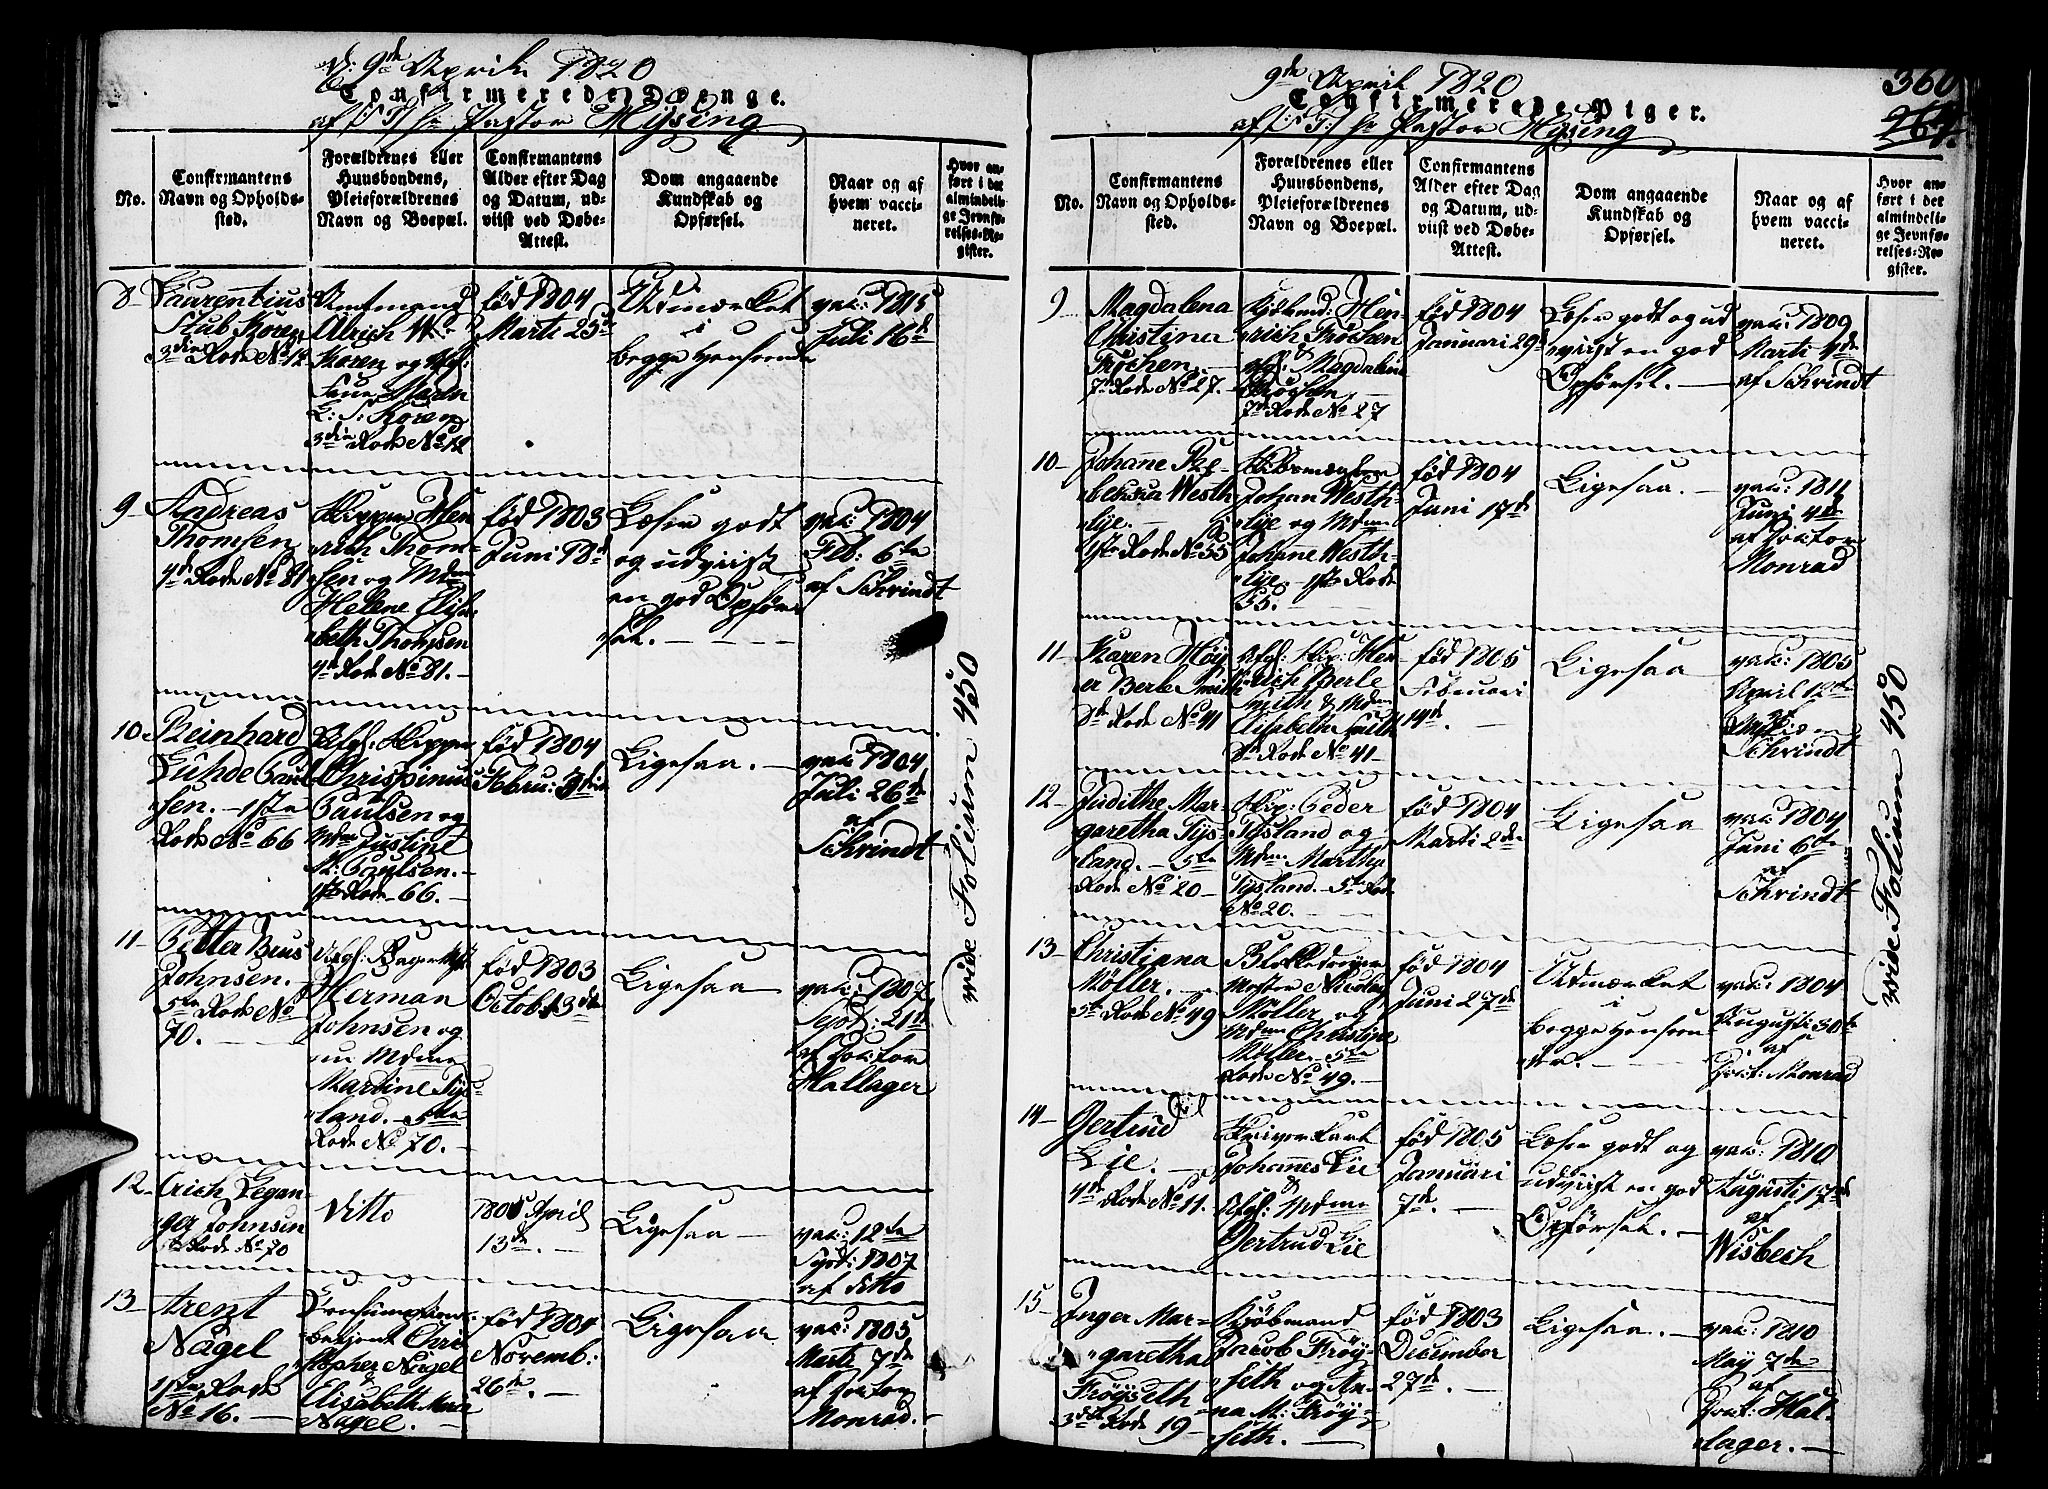 d: 9de Aprili 1820
Confirmerede Drenge.
af S: T: Hr Pastor Hysing
No.
Confirmantens
Navn og Opholds-
sted.
Forældrenes eller
Huusbondens,
Pleieforældrenes
Navn og Boepæl.
Confirmantens
Alder efter Dag
og Datum, ud-
viist ved Døbe-
Attest.
Dom angaaende
Kundskab og
Opførsel.
Naar og af
hvem vacci-
neret.
Hvor an-
ført i det
almindeli-
ge Jevnfø-
relses-Re-
gister.
8
Laurentius
Stub Koren
3die Rode No 12
Amtmand
Ulrich W:
Koren og
Frue Maren
Koren
3die Rode No 12
født 1804
Marti 25de
Udmærket
i
begge Henseender
vak: 1815
Juli 16de
9
Andreas
Thomsen
4de Rode No 81
Skipper Hen
rich Thom-
sen og Mdme
Helene Elisa
beth Thomsen
4de Rode No 81.
fød 1803
Juni 18de
Læser godt
og udviist
en god Opfør
sel.
vak: 1804
Feb: 6te
af Schrindt
10
Reinhard
Luhde Paul
sen. 1ste
Rode No 66
Afg: Skipper
Chrispinus
Paulsen og
Mdme Justine
M: Paulsen.
1ste Rode 66.
fød 1804
Febru:
Ligesaa.
vak 1804
Juli 26de
af
Schrindt
11
Petter Brus
Johnsen.
5te Rode No
70.
Afg: Bager Mst
Herman
Johnsen og
nu Mdme
Martine Tys-
land. 5te
Rode No 70.
fød 1803
Octob: 3de
Ligesaa
vak: 1807
Sept: 21de
af Doktor
Hallager
12
Erich Legan-
ger Johnsen
5te Rode No 70
ditto
1805 April
13de.
Ligesaa
vak: 12te
Sept: 1807
af ditto
13
Arent
Nagel
1ste Rode
No 16.
Consumtions-
betjent Chris
stopher Nagel
&
Elisabeth Maria
Nagel.
fød 1804
Novemb:
26de.
Ligesaa
vak: 1805
Marti 7de
af Doktor
Monrad.
vide Folium 450
9de April 1820
Confirmerede Piger.
af S: T: Hr Pastor Hysing
360
267.
No.
Confirmantens
Navn og Opholds-
sted.
Forældrenes eller
Huusbondens,
Pleieforældrenes
Navn og Boepæl.
Confirmantens
Alder efter Dag
og Datum, ud-
viist ved Døbe-
Attest.
Dom angaaende
Kundskab og
Opførsel.
Naar og af
hvem vacci-
neret.
Hvor an-
ført i det
almindeli-
ge Jevnfø-
relses-Re-
gister.
9
Magdalena
Christina
Frøchen
7de Rode No 27.
Kjøbmd: Hen-
rich Frøchen
&
Afg: Magdalene
Frøchen
7de Rode No 27
fød 1804
Januari 29de
Læser godt og ud
viist en god
Opførsel.
vak: 1809
Marti 4de
af Schrindt
10
Johane Re-
bekka Westh
lye.
1ste Rode No 55
Johan Westh-
lye og Mdme
Johane Westh-
lye. 1ste Rode
55.
fød 1804
Juni 17de
Ligesaa.
vak: 1811
Juni 4de
af Doktor
Monrad
11
Karen Høy
er Berle Smith
8de Rode No 41
Afg: Skip: Hen-
rich Berle
Smith & Mdme
Elisabetha Smith
8de Rode No 41
fød 1805
Februari
14de.
Ligesaa
vak: 1805
April 12te
af
Schrindt
12
Judithe Mar-
garetha Tys-
land. 5te
Rode No 20
Skip: Peder
Tysland og
Mdme Marthe
Tysland. 5te Rode
No 20.
fød 1804
Marti 2de
Ligesaa
vak 1804
Juni 6te
af
Schrindt
13
Christiana
Møller.
5te Rode No 49
Blokkedreyer
Mester Nicolay
Møller og
Mdme Christine
Møller. 5te
Rode No 49.
fød 1804
Juni 27de
Udmærket
i
begge Henseen
der.
vak: 1804
Augusti 30te
af
Dokt: Monrad
14
Gertrud
Lie.
4de Rode No 11.
Skriver Karl
Johannes Lie
&
Afg: Mdme
Gertrud Lie
fød 1805
Januari
7de.
Læser godt og
udviist en god
Opførsel.
vak: 1810
Augusti 17de
af
Wisbech
15
Inger Mar-
garetha
Frøyseth
3die Rode 19
Kjøbmand
Jacob Frøy-
seth og An-
na M: Frøy-
seth.
fød 1803
December
27de.
Ligesaa.
vak: 1810
May 7de
af
Dokt: Hal-
lager.
vide Folium 450